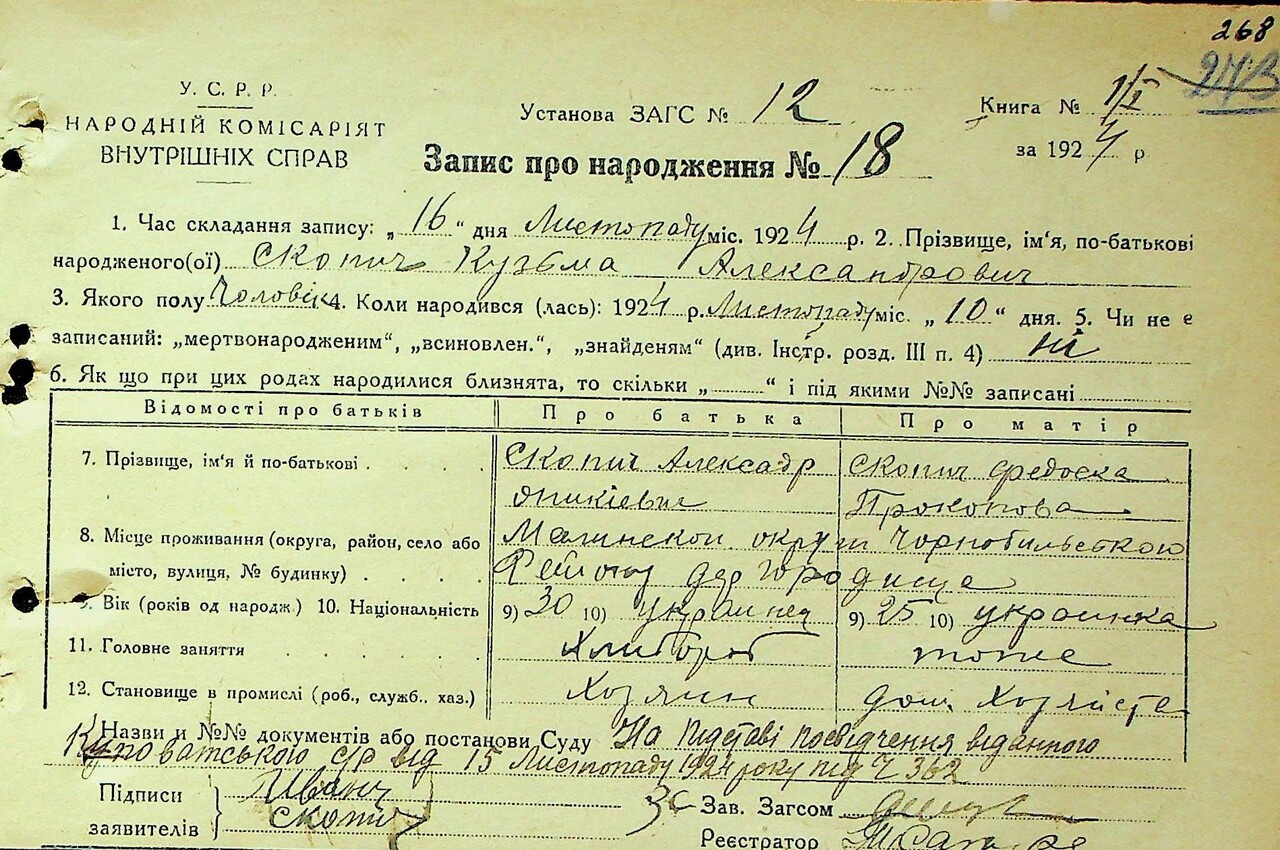 268
243
У. С. Р. Р.
НАРОДНІЙ КОМІСАРІЯТ
ВНУТРІШНІХ СПРАВ
Установа ЗАГС № 12
Книга № 1/І
за 1924 р
Запис про народження № 18
1. Час складання запису: „16“ дня Листопаду міс. 1924 р. 2. Прізвище, ім'я, по-батькові
народженого(ої) Скопич Кузьма Александрович
3. Якого полу Чоловік 4. Коли народився (лась): 1924 р. Листопаду міс. „10“ дня. 5. Чи не є
записаний: „мертвонародженим“, „всиновлен.“, „знайденям“ (див. Інстр. розд. III п. 4) ні
6. Як що при цих родах народилися близнята, то скільки „ “ і під якими №№ записані
Відомості про батьків Про батька Про матір
7. Прізвище, ім'я й по-батькові Скопич Александр Скопич Федоска
Аникіевич Прокопова
8. Місце проживання (округа, район, село або Малинской округи Чорнобильською
місто, вулиця, № будинку) Рейону дер Городища
9. Вік (років од народж.) 10. Національність 9) 30 10) украинец 9) 25 10) украинка
11. Головне заняття Хлибороб тоже
12. Становище в промислі (роб., службв., хаз.) Хозяин дом. Хозяйста
Назви и №№ документів або постанови Суду На підставі посвідчення віданного
Куповатського с/р від 15 Листопаду 1924 року під Ч 362
Підписи Иванъ
заявителів Скопич
Зав. Загсом
Реєстратор